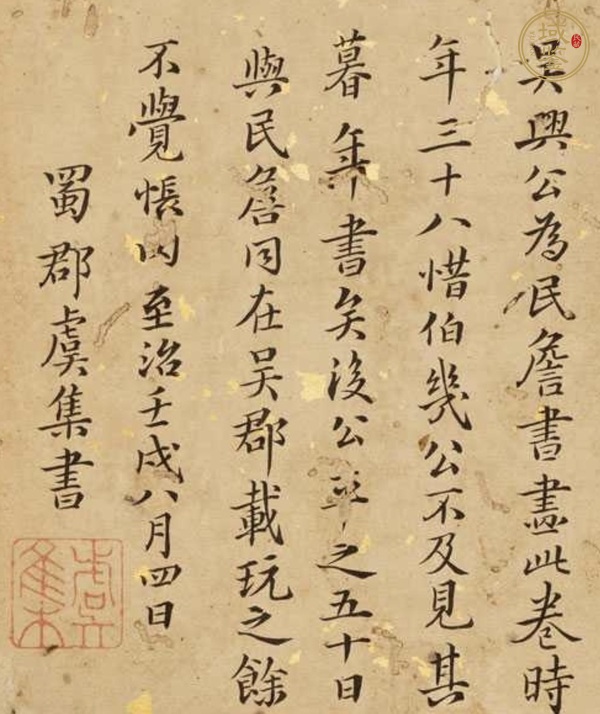 吳興公為民詹書盡此卷時
年三十八惜伯幾公不及見其
暮年書矣後公卒之五十日
與民詹同在吳郡載玩之餘
不覺悵因至治壬戌八月四日
蜀郡虞集書
虞集